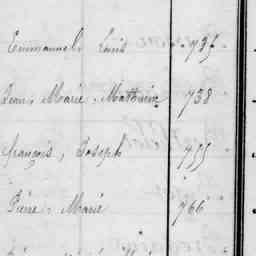 Emmanuel Louis 735
Jean, Marie, Mathurin 738
François, Joseph 755
Pierre, Marie 766